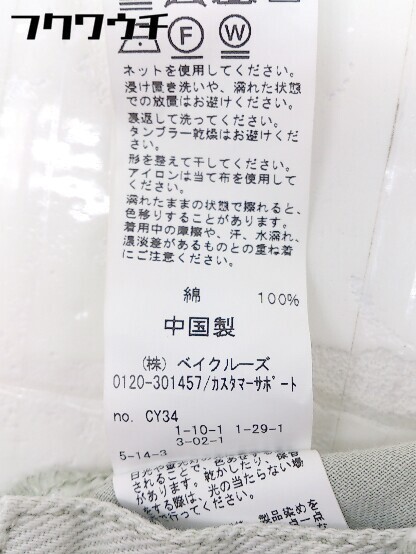 フクワウチ
F
W
ネットを使用してください。
浸け置き洗いや、濡れた状態
での放置はお避けください。
裏返して洗ってください。
タンブラー乾燥はお避けくだ
さい。
形を整えて干してください。
アイロンは当て布を使用して
ください。
濡れたままの状態で擦れると、
色移りすることがあります。
着用中の摩擦や、汗、水濡れ、
濃淡差があるものとの重ね着
にご注意ください。
綿 100%
中国製
(株) ベイクルーズ
0120-301457/カスタマーサポート
no. CY34
1-10-1 1-29-1
5-14-3 3-02-1
されることで、
があります。乾かしたり、保管
する際は、光の当たらない場
行ってください。
製品染めを